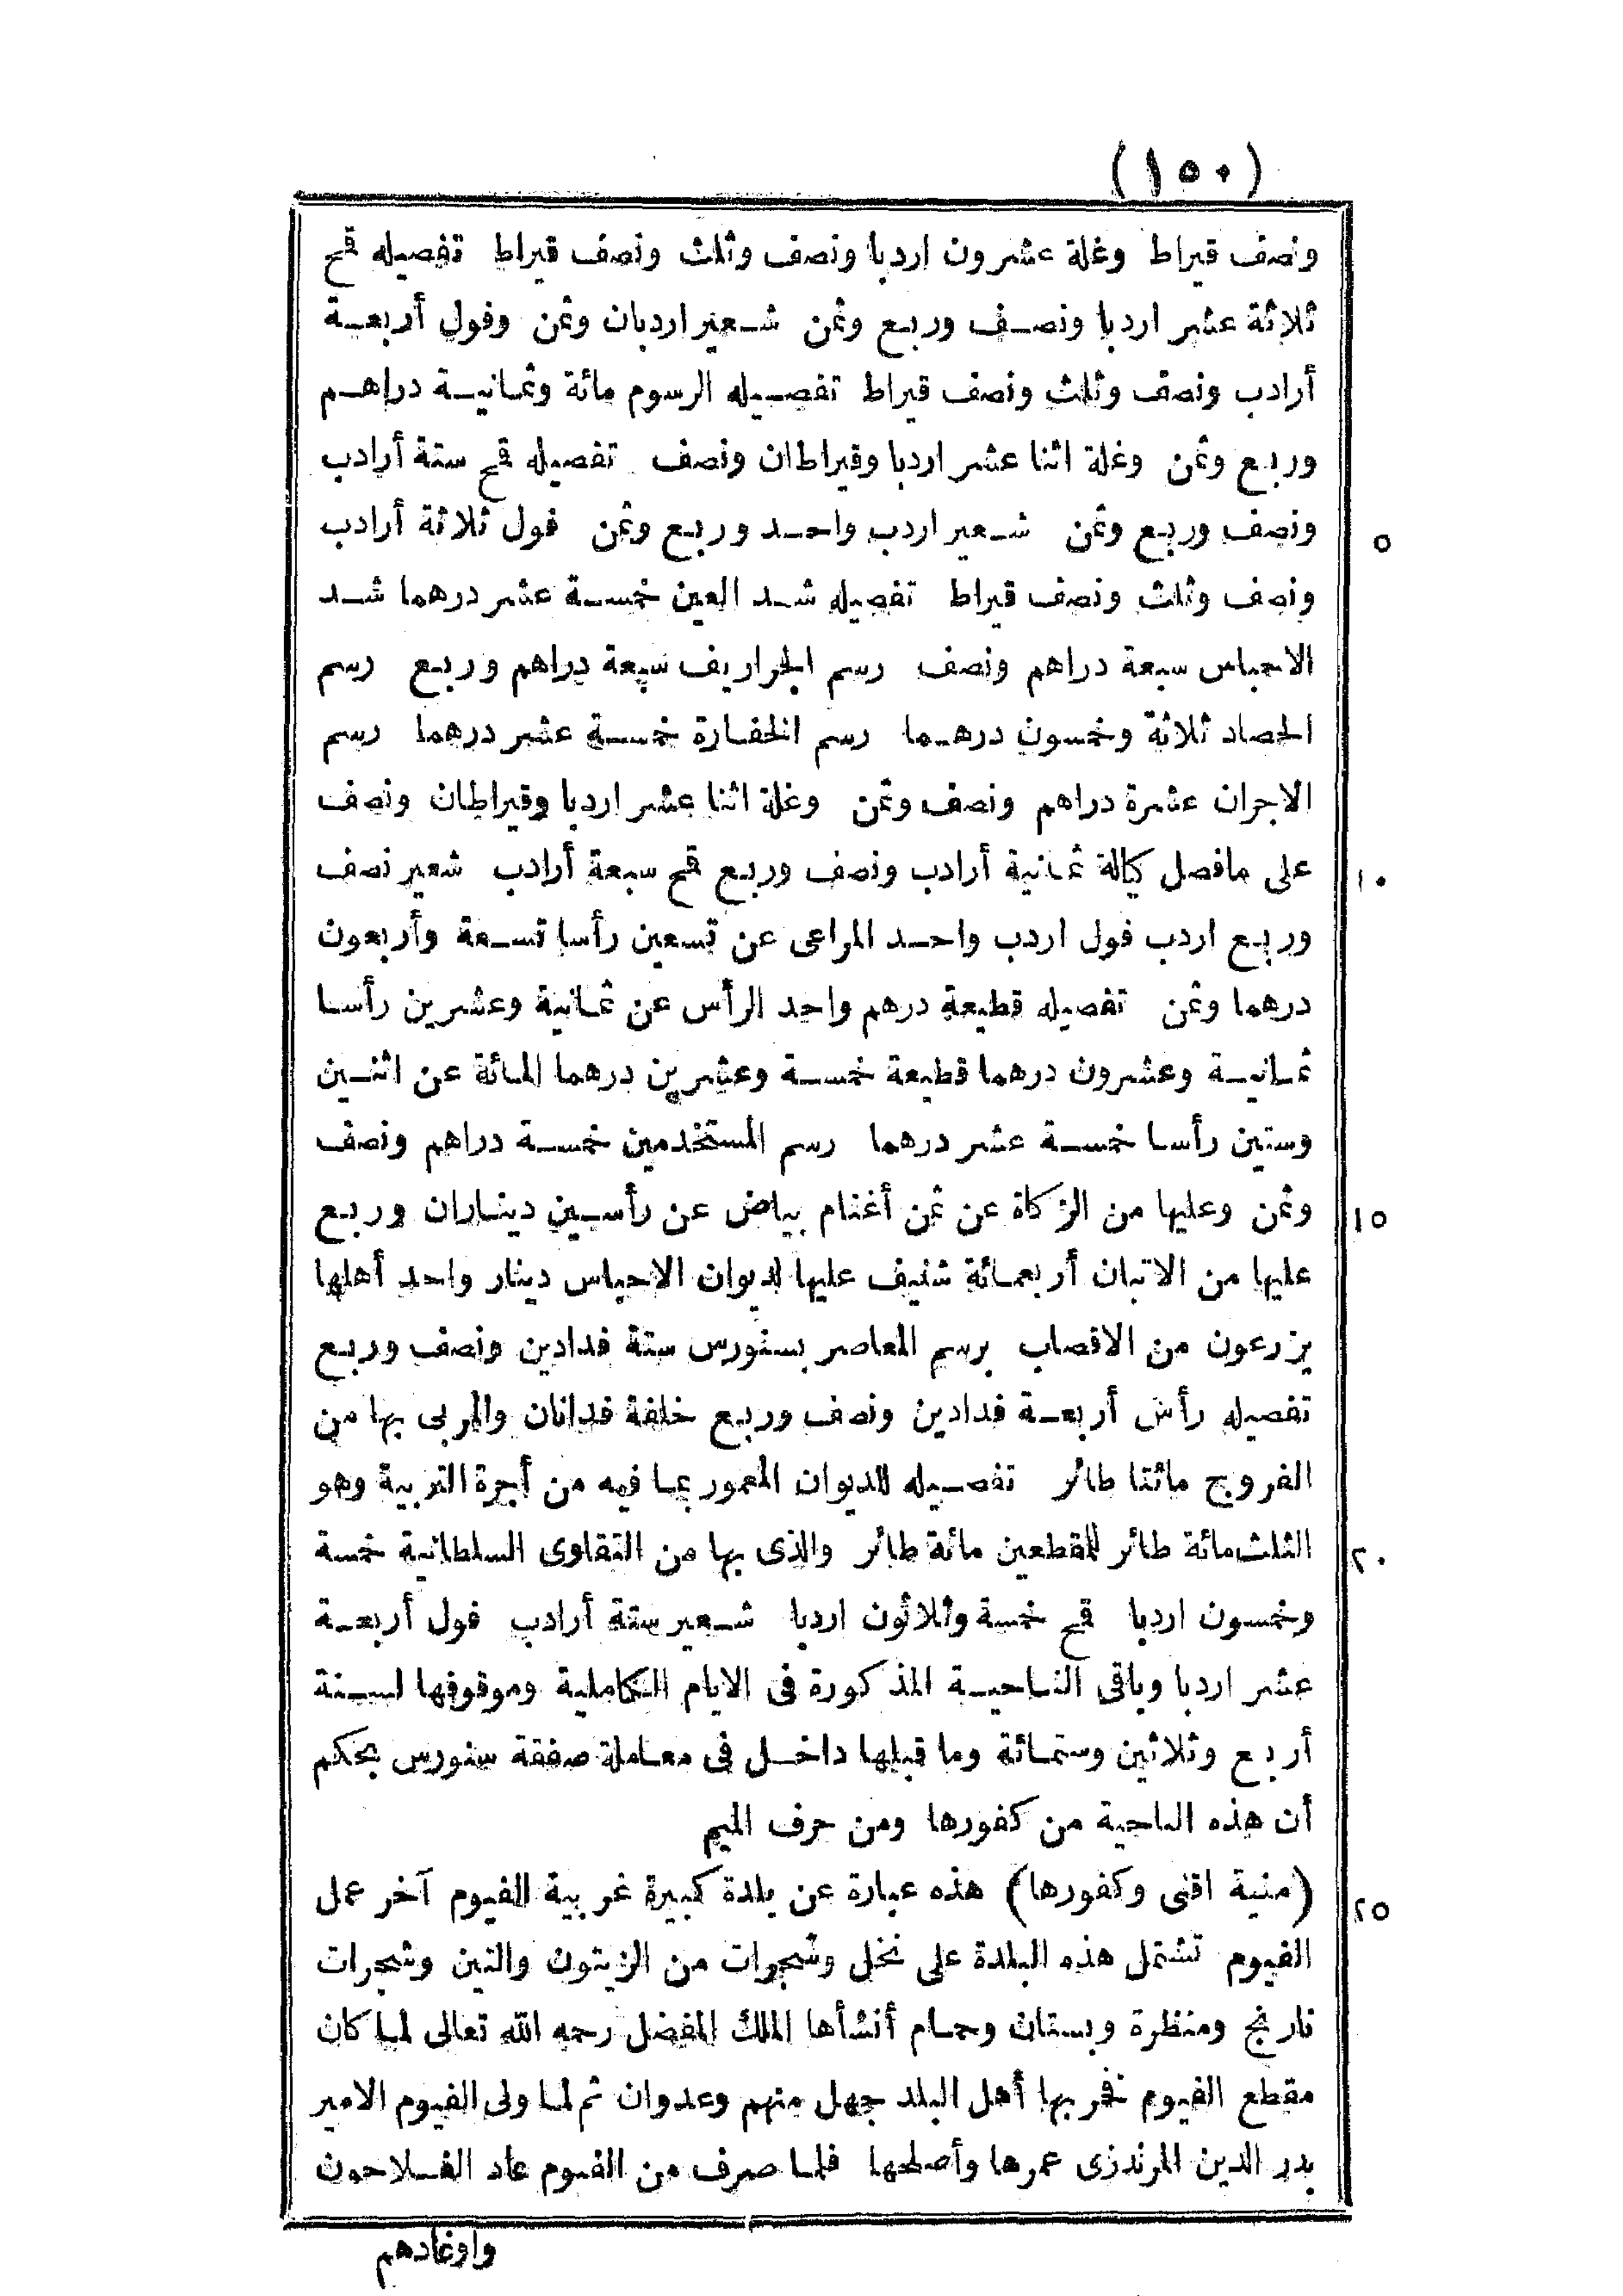 (١٥٠)
ونصف قيراط وغلة عشرون اردبا ونصف وثلث ونصف قيراط تفصيله قمح
ثلاثة عشر اردبا ونصف وربع وثمن شعير اردبان وثمن وفول أربعة
أرادب ونصف وثلث ونصف قيراط تفصيله الرسوم مائة وثمانية دراهم
وربع وثمن وغلة اثنا عشر اردبا وقيراطان ونصف تفصيله قمح ستة أرادب
ونصف وربع وثمن شعير اردب واحد وربع وثمن فول ثلاثة أرادب
٥
ونصف وثلث ونصف قيراط تفصيله شد العين خمسة عشر درهما شد
الاحباس سبعة دراهم ونصف رسم الجراريف سبعة دراهم وربع رسم
الحصاد ثلاثة وخمسون درهما رسم الخفارة خمسة عشر درهما رسم
الاجران عشرة دراهم ونصف وثمن وغلة اثنا عشر اردبا وقيراطان ونصف
على مافصل كيالة ثمانية أرادب ونصف وربع قمح سبعة أرادب شعير نصف
١٠
وربع اردب فول اردب واحد المراعى عن تسعين رأسا تسعة وأربعون
درهما وثمن تفصيله قطيعة درهم واحد الرأس عن ثمانية وعشرين رأسا
ثمانية وعشرون درهما قطيعة خمسة وعشرين درهما المائة عن اثنين
وستين رأسا خمسة عشر درهما رسم المستخدمين خمسة دراهم ونصف
وثمن وعليها من الزكاة عن ثمن أغنام بياض عن رأسين ديناران وربع
١٥
عليها من الاتبان أربعمائة شنيف عليها لديوان الاحباس دينار واحد أهلها
يزرعون من الاقصاب برسم المعاصر بسنورس ستة فدادين ونصف وربع
تفصيله رأس أربعة فدادين ونصف وربع خلفة فدانان والمربى بها من
الفروج مائتا طائر تفصيله للديوان المعمور بما فيه من أجرة التربية وهو
الثلث مائة طائر للمقطعين مائة طائر والذى بها من التقاوى السلطانية خمسة
٢٠
وخمسون اردبا قمح خمسة وثلاثون اردبا شعير ستة أرادب فول أربعة
عشر اردبا وباقى الناحية المذكورة فى الايام الكاملية وموقوفها لسنة
أربع وثلاثين وستمائة وما قبلها داخل فى معاملة صفقة سنورس بحكم
أن هذه الناحية من كفورها ومن حرف الميم
(منية اقنى وكفورها) هذه عبارة عن بلدة كبيرة غربية الفيوم آخر عمل
٢٥
الفيوم تشتمل هذه البلدة على نخل وشجرات من الزيتون والتين وشجرات
نارنج ومنظرة وبستان وحمام أنشأها الملك المفضل رحمه الله تعالى لما كان
مقطع الفيوم فخربها أهل البلد جهل منهم وعدوان ثم لما ولى الفيوم الامير
بدر الدين المرندزى عمرها وأصلحها فلما صرف من الفيوم عاد الفلاحون
واوغادهم